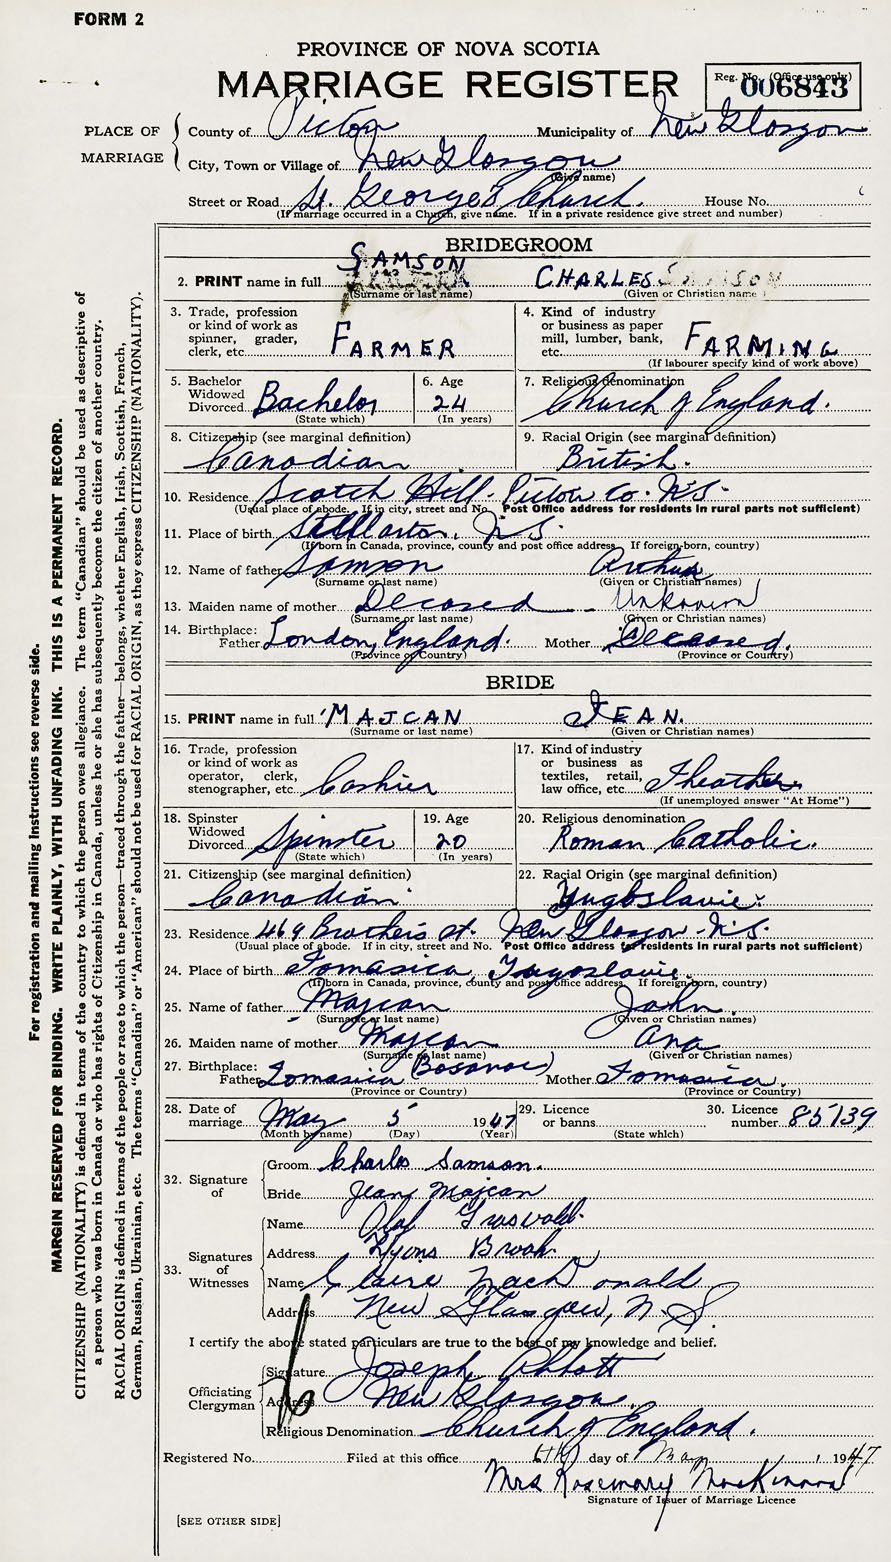 FORM 2
PROVINCE OF NOVA SCOTIA
MARRIAGE REGISTER
Reg. No. (Office use only)
006843
PLACE OF MARRIAGE
County of Pictou Municipality of New Glasgow
City, Town or Village of New Glasgow
(Give name)
Street or Road St. George's Church. House No.
(If marriage occurred in a Church, give name. If in a private residence give street and number)
BRIDEGROOM
2. PRINT name in full SAMSON CHARLES
(Surname or last name) (Given or Christian name)
3. Trade, profession or kind of work as spinner, grader, clerk, etc. FARMER
4. Kind of industry or business as paper mill, lumber, bank, etc. FARMING
(If labourer specify kind of work above)
5. Bachelor Widowed Divorced Bachelor
(State which)
6. Age 24
(In years)
7. Religious denomination
Church of England.
8. Citizenship (see marginal definition)
Canadian
9. Racial Origin (see marginal definition)
British.
10. Residence Scotch Hill. Pictou Co. N.S.
(Usual place of abode. If in city, street and No. Post Office address for residents in rural parts not sufficient)
11. Place of birth Stellarton, N.S.
(If born in Canada, province, county and post office address. If foreign-born, country)
12. Name of father Samson Arthur
(Surname or last name) (Given or Christian names)
13. Maiden name of mother Deceased Unknown
(Surname or last name) (Given or Christian names)
14. Birthplace:
Father London, England. Mother Deceased.
(Province or Country) (Province or Country)
BRIDE
15. PRINT name in full MAJCAN JEAN.
(Surname or last name) (Given or Christian names)
16. Trade, profession or kind of work as operator, clerk, stenographer, etc. Cashier
17. Kind of industry or business as textiles, retail, law office, etc. Theather
(If unemployed answer "At Home")
18. Spinster Widowed Divorced Spinster
(State which)
19. Age 20
(In years)
20. Religious denomination
Roman Catholic.
21. Citizenship (see marginal definition)
Canadian
22. Racial Origin (see marginal definition)
Yugoslavie.
23. Residence 469 Brothers St. New Glasgow - N.S.
(Usual place of abode. If in city, street and No. Post Office address for residents in rural parts not sufficient)
24. Place of birth Tomasica Jugoslavie.
(If born in Canada, province, county and post office address. If foreign-born, country)
25. Name of father Majcan John.
(Surname or last name) (Given or Christian names)
26. Maiden name of mother Majcan Ana
(Surname or last name) (Given or Christian names)
27. Birthplace:
Father Tomasica Mother Tomasica.
(Province or Country) (Province or Country)
28. Date of marriage May 5 1947
(Month by name) (Day) (Year)
29. Licence or banns
(State which)
30. Licence number 85139
32. Signature of
Groom Charles Samson.
Bride Jean Majcan
33. Signatures of Witnesses
Name Olaf
Address Lyons Brook.
Name Claire MacDonald
Address New Glasgow, N.S.
I certify the above stated particulars are true to the best of my knowledge and belief.
Officiating Clergyman
Signature Joseph Abbott
Address New Glasgow.
Religious Denomination Church of England.
Registered No. Filed at this office 6th day of May, 1947
Mrs Rosemary MacKinnon
Signature of Issuer of Marriage Licence
[SEE OTHER SIDE]
For registration and mailing instructions see reverse side.
MARGIN RESERVED FOR BINDING. WRITE PLAINLY, WITH UNFADING INK. THIS IS A PERMANENT RECORD.
CITIZENSHIP (NATIONALITY) is defined in terms of the country to which the person owes allegiance. The term "Canadian" should be used as descriptive of
a person who was born in Canada or who has rights of Citizenship in Canada, unless he or she has subsequently become the citizen of another country.
RACIAL ORIGIN is defined in terms of the people or race to which the person—traced through the father—belongs, whether English, Irish, Scottish, French,
German, Russian, Ukrainian, etc. The terms "Canadian" or "American" should not be used for RACIAL ORIGIN, as they express CITIZENSHIP (NATIONALITY).